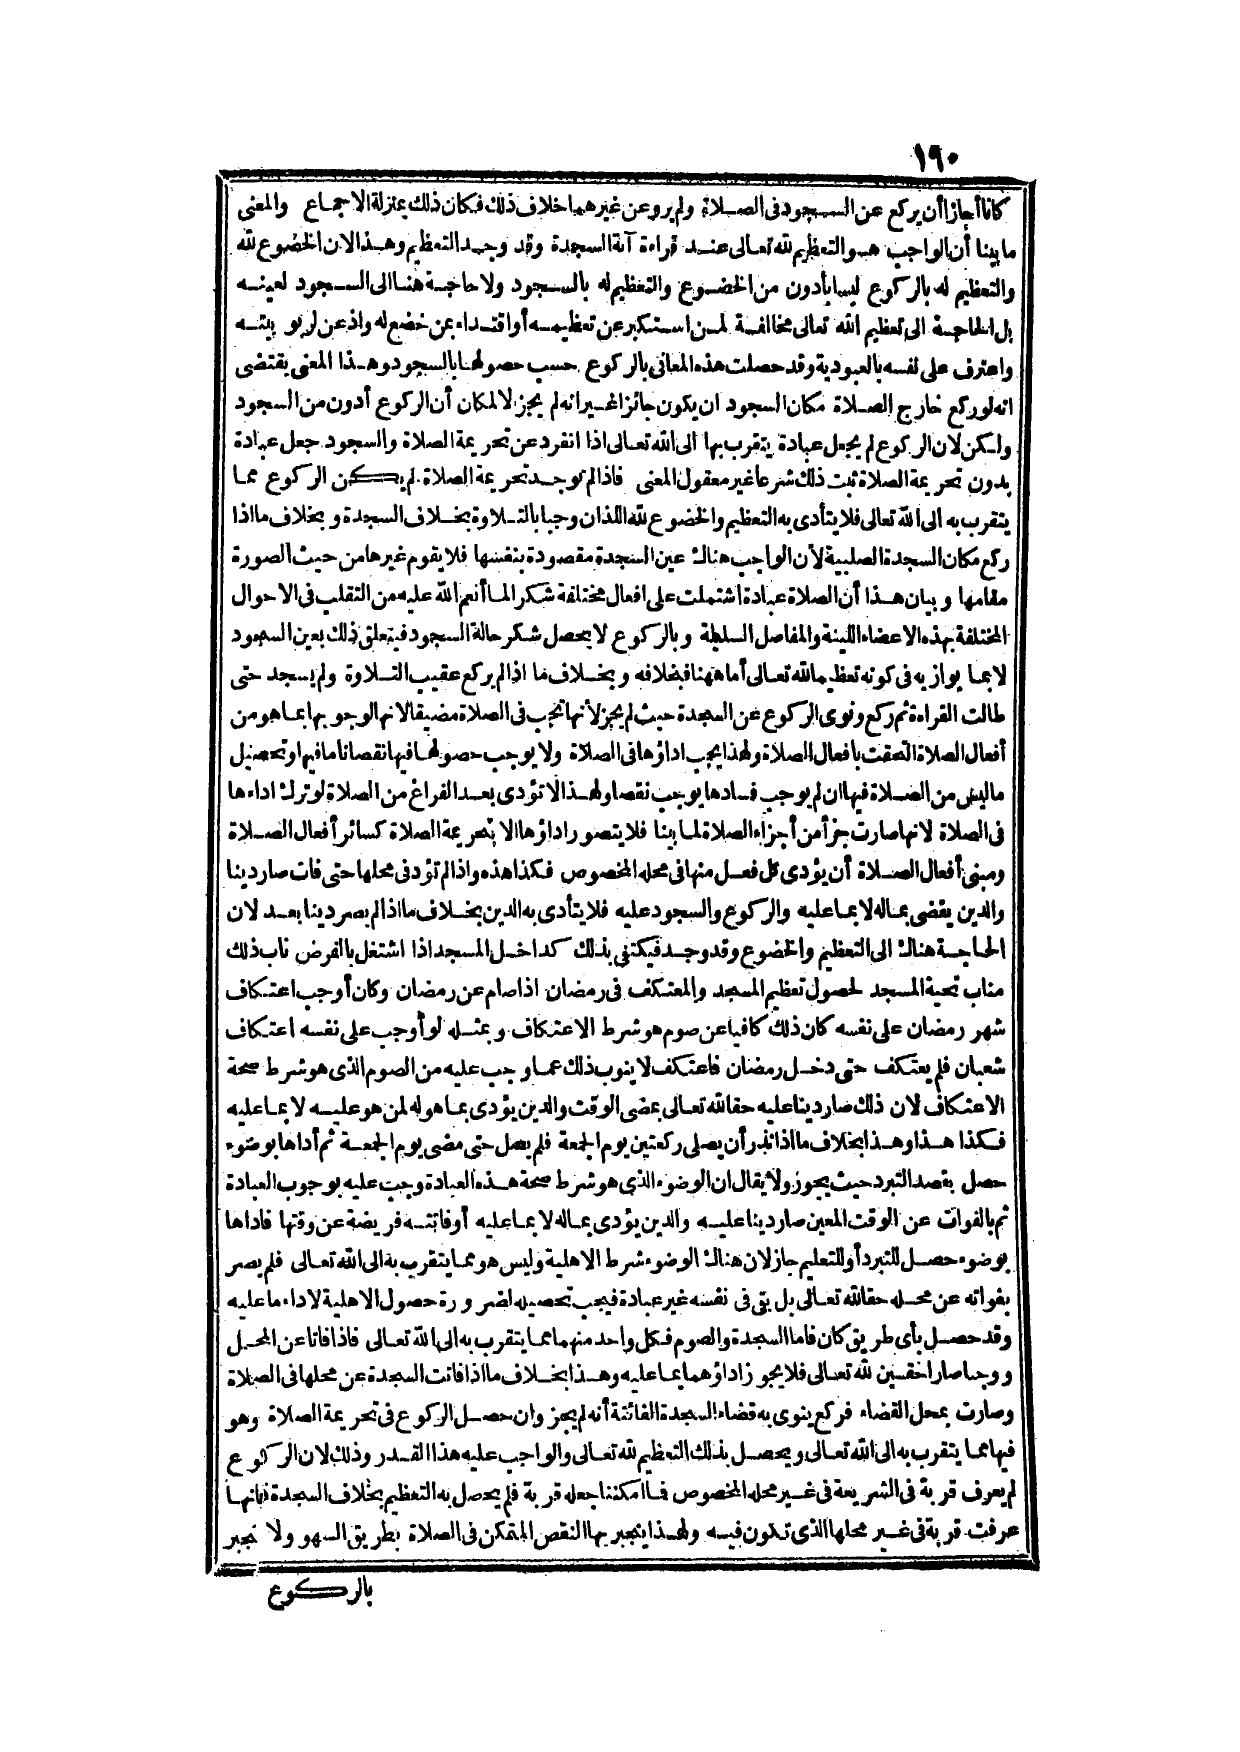 ١٩٠
كانا أجازا أن يركع عن السجود فى الصلاة ولم يرو عن غيرهما خلاف ذلك فكان ذلك بمنزلة الاجماع والمعنى
ما بينا أن الواجب هو التعظيم لله تعالى عند قراءة آية السجدة وقد وجد التعظيم وهذا لان الخضوع لله
والتعظيم له بالركوع ليسا بأدون من الخضوع والتعظيم له بالسجود ولا حاجة هنا الى السجود لعينه
بل الحاجة الى تعظيم الله تعالى مخالفة لمن استكبر عن تعظيمه أو اقتداء بمن خضع له واذعن لربوبيته
واعترف على نفسه بالعبودية وقد حصلت هذه المعانى بالركوع حسب حصولها بالسجود وهذا المعنى يقتضى
انه لو ركع خارج الصلاة مكان السجود ان يكون جائزا غير انه لم يجز لا لمكان أن الركوع أدون من السجود
ولكن لان الركوع لم يجعل عبادة يتقرب بها الى الله تعالى اذا انفرد عن تحريمة الصلاة والسجود جعل عبادة
بدون تحريمة الصلاة ثبت ذلك شرعا غير معقول المعنى فاذا لم توجد تحريمة الصلاة لم يكن الركوع مما
يتقرب به الى الله تعالى فلا يتأدى به التعظيم والخضوع لله اللذان وجبا بالتلاوة بخلاف السجدة وبخلاف ما اذا
ركع مكان السجدة الصلبية لأن الواجب هناك عين السجدة مقصودة بنفسها فلا يقوم غيرها من حيث الصورة
مقامها وبيان هذا أن الصلاة عبادة اشتملت على افعال مختلفة شكرا لما أنعم الله عليه من التقلب فى الاحوال
المختلفة بهذه الاعضاء اللينة والمفاصل السلطة وبالركوع لا يحصل شكر حالة السجود فيتعلق ذلك بعين السجود
لا بما يوازيه فى كونه تعظيما لله تعالى أما ههنا فبخلافه وبخلاف ما اذا لم يركع عقيب التلاوة ولم يسجد حتى
طالت القراءة ثم ركع ونوى الركوع عن السجدة حيث لم يجز لأنها تجب فى الصلاة مضيقا لانها لوجوبها بما هو من
أفعال الصلاة التحقت بافعال الصلاة ولهذا يجب اداؤها فى الصلاة ولا يوجب حصولها فيها نقصانا ما فيها وتحصيل
ما ليس من الصلاة فيها ان لم يوجب فسادها يوجب نقصا ولهذا لا تؤدى بعد الفراغ من الصلاة لو ترك اداءها
فى الصلاة لانها صارت جزأ من أجزاء الصلاة لما بينا فلا يتصور اداؤها الا بتحريمة الصلاة كسائر أفعال الصلاة
ومبنى أفعال الصلاة أن يؤدى كل فعل منها فى محله المخصوص فكذا هذه واذا لم تؤد فى محلها حتى فات صار دينا
والدين يقضى بما له لا بما عليه والركوع والسجود عليه فلا يتأدى به الدين بخلاف ما اذا لم يصر دينا بعد لان
الحاجة هناك الى التعظيم والخضوع وقد وجد فيكتفى بذلك كداخل المسجد اذا اشتغل بالفرض ناب ذلك
مناب تحية المسجد لحصول تعظيم المسجد والمعتكف فى رمضان اذا صام عن رمضان وكان أوجب اعتكاف
شهر رمضان على نفسه كان ذلك كافيا عن صوم هو شرط الاعتكاف وبمثله لو أوجب على نفسه اعتكاف
شعبان فلم يعتكف حتى دخل رمضان فاعتكف لا ينوب ذلك عما وجب عليه من الصوم الذى هو شرط صحة
الاعتكاف لان ذلك صار دينا عليه حقا لله تعالى بمضى الوقت والدين يؤدى بما هو له لمن هو عليه لا بما عليه
فكذا هذا وهذا بخلاف ما اذا نذر أن يصلى ركعتين يوم الجمعة فلم يصل حتى مضى يوم الجمعة ثم أداها بوضوء
حصل بقصد التبرد حيث يجوز ولا يقال ان الوضوء الذى هو شرط صحة هذه العبادة وجب عليه بوجوب العبادة
ثم بالفوات عن الوقت المعين صار دينا عليه والدين يؤدى بما له لا بما عليه أو فاتته فريضة عن وقتها فاداها
بوضوء حصل للتبرد أو للتعليم جاز لان هناك الوضوء شرط الاهلية وليس هو مما يتقرب به الى الله تعالى فلم يصر
بفواته عن محله حقا لله تعالى بل بقى فى نفسه غير عبادة فيجب تحصيله لضرورة حصول الاهلية لاداء ما عليه
وقد حصل بأى طريق كان فاما السجدة والصوم فكل واحد منهما مما يتقرب به الى الله تعالى فاذا فاتا عن المحل
ووجبا صارا حقين لله تعالى فلا يجوز اداؤهما بما عليه وهذا بخلاف ما اذا فاتت السجدة عن محلها فى الصلاة
وصارت بمحل القضاء فركع ينوى به قضاء السجدة الفائتة أنه لم يجز وان حصل الركوع فى تحريمة الصلاة وهو
فيها مما يتقرب به الى الله تعالى ويحصل بذلك التعظيم لله تعالى والواجب عليه هذا القدر وذلك لان الركوع
لم يعرف قربة فى الشريعة فى غير محله المخصوص فما امكننا جعله قربة فلم يحصل به التعظيم بخلاف السجدة فانها
عرفت قربة فى غير محلها الذى تكون فيه ولهذا ينجبر بها النقص المتمكن فى الصلاة بطريق السهو ولا تجبر
بالركوع